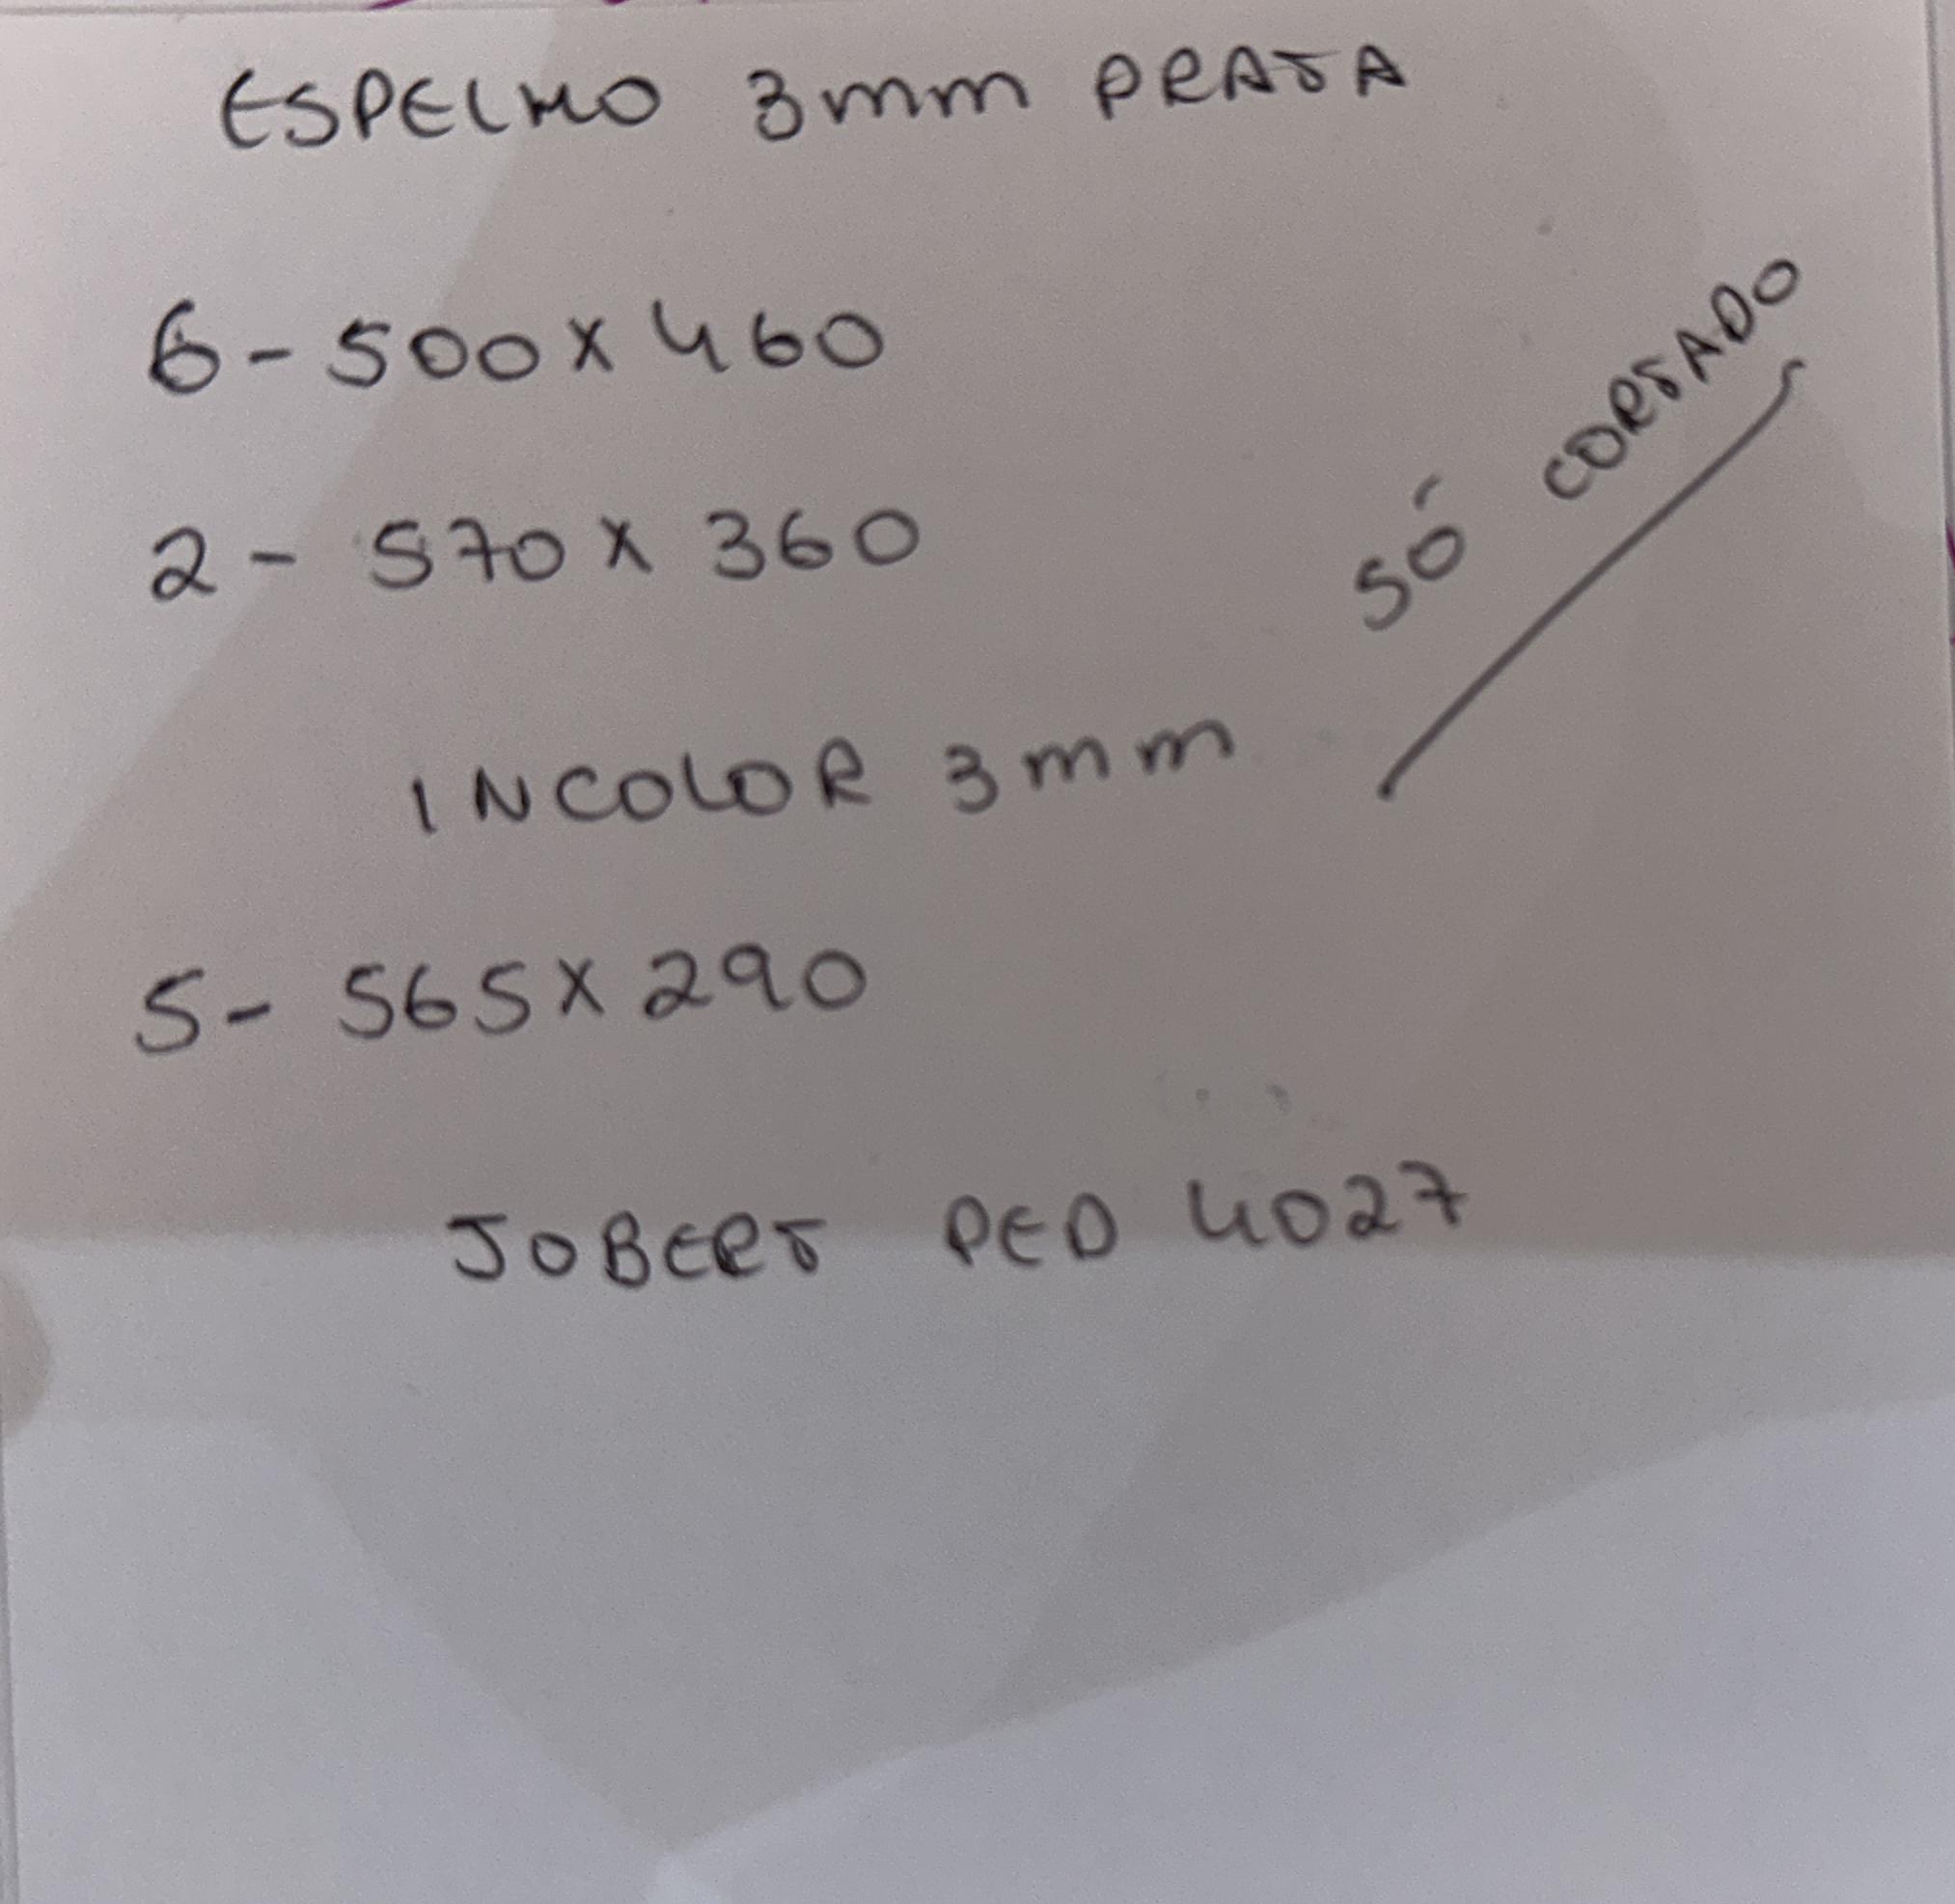 ESPELHO 3mm PRATA
6 - 500 x 460
2 - 570 x 360
SÓ CORTADO
INCOLOR 3mm
5 - 565 x 290
JOBERT PED 4027